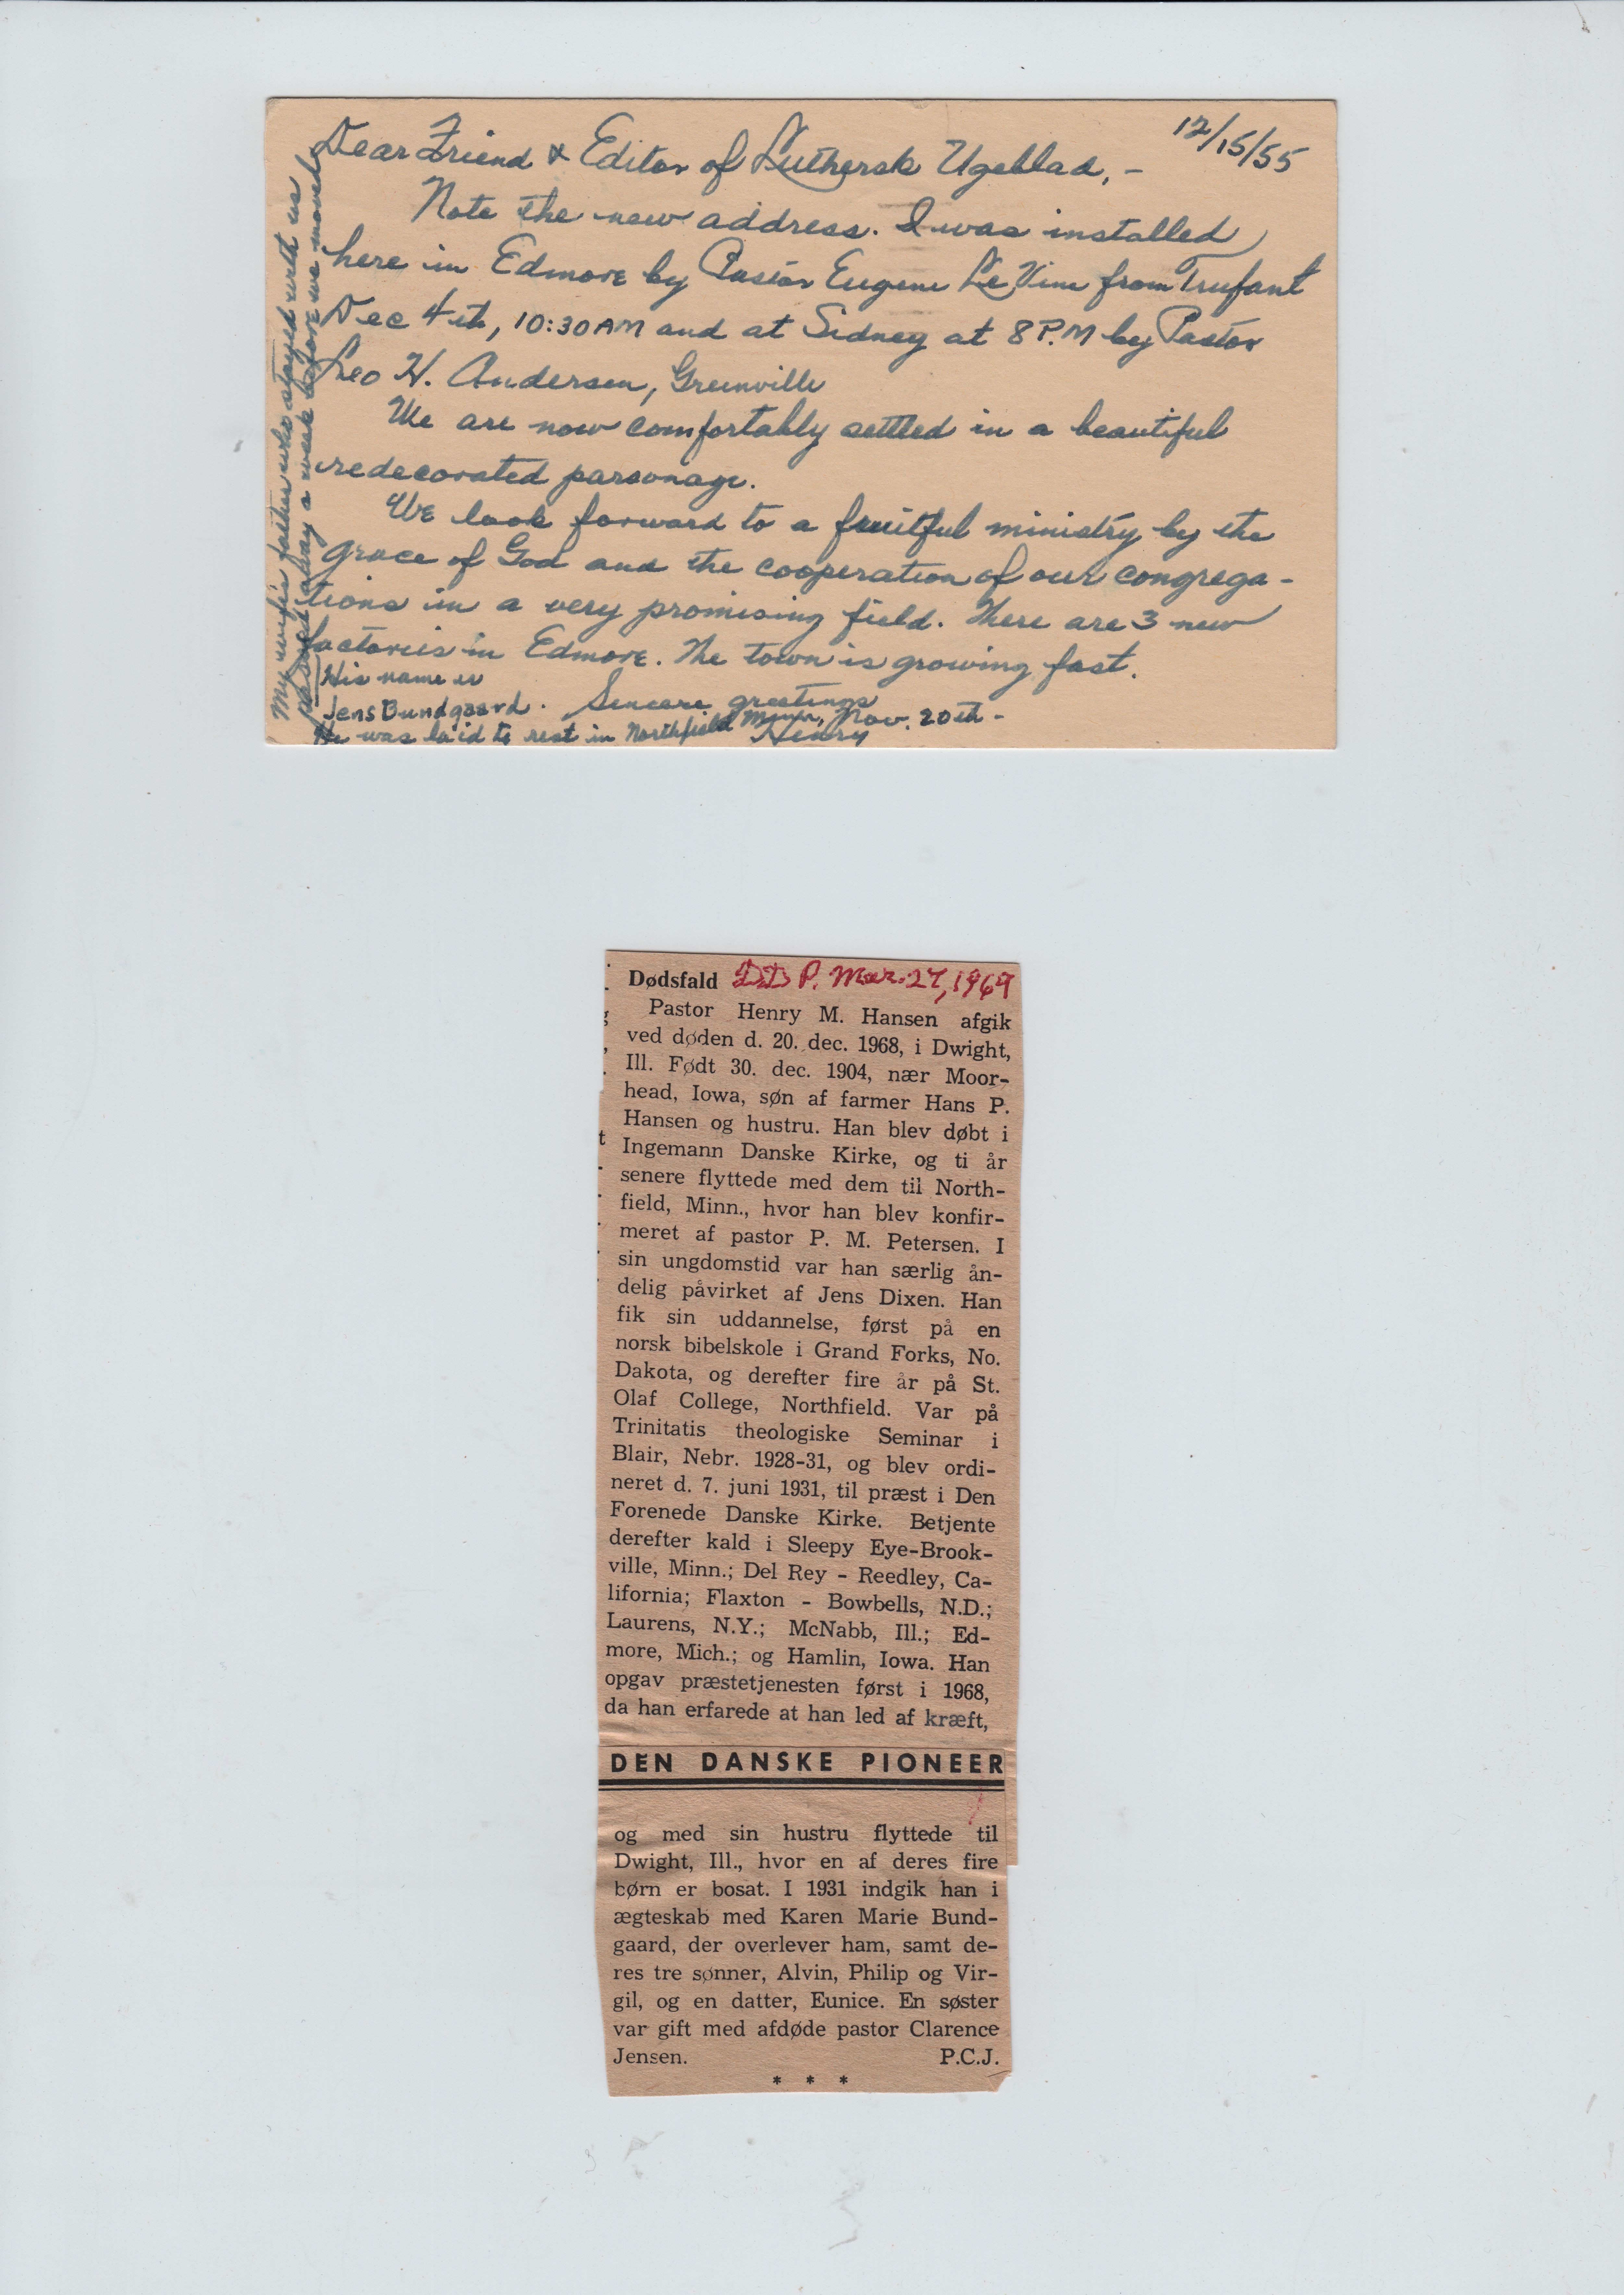 12/15/55
Dear Friend & Editor of Luthersk Ugeblad, -
Note the new address. I was installed
here in Edmore by Pastor Eugene Le Vine from Trufant
Dec 4th, 10:30 AM and at Sidney at 8 P.M by Pastor
Leo H. Andersen, Greenville
We are now comfortably settled in a beautiful
redecorated parsonage.
We look forward to a fruitful ministry by the
grace of God and the cooperation of our congrega-
tions in a very promising field. There are 3 new
factories in Edmore. The town is growing fast.
Sincere greetings
Henry
My wife's father who stayed with us
passed away a week before we moved
His name is
Jens Bundgaard.
He was laid to rest in Northfield Minn, Nov. 20th -
Dødsfald D.D. P. Mar. 27, 1969
Pastor Henry M. Hansen afgik
ved døden d. 20. dec. 1968, i Dwight,
Ill. Født 30. dec. 1904, nær Moor-
head, Iowa, søn af farmer Hans P.
Hansen og hustru. Han blev døbt i
Ingemann Danske Kirke, og ti år
senere flyttede med dem til North-
field, Minn., hvor han blev konfir-
meret af pastor P. M. Petersen. I
sin ungdomstid var han særlig ån-
delig påvirket af Jens Dixen. Han
fik sin uddannelse, først på en
norsk bibelskole i Grand Forks, No.
Dakota, og derefter fire år på St.
Olaf College, Northfield. Var på
Trinitatis theologiske Seminar i
Blair, Nebr. 1928-31, og blev ordi-
neret d. 7. juni 1931, til præst i Den
Forenede Danske Kirke. Betjente
derefter kald i Sleepy Eye-Brook-
ville, Minn.; Del Rey - Reedley, Ca-
lifornia; Flaxton - Bowbells, N.D.;
Laurens, N.Y.; McNabb, Ill.; Ed-
more, Mich.; og Hamlin, Iowa. Han
opgav præstetjenesten først i 1968,
da han erfarede at han led af kræft,
DEN DANSKE PIONEER
og med sin hustru flyttede til
Dwight, Ill., hvor en af deres fire
børn er bosat. I 1931 indgik han i
ægteskab med Karen Marie Bund-
gaard, der overlever ham, samt de-
res tre sønner, Alvin, Philip og Vir-
gil, og en datter, Eunice. En søster
var gift med afdøde pastor Clarence
Jensen. P.C.J.
* * *